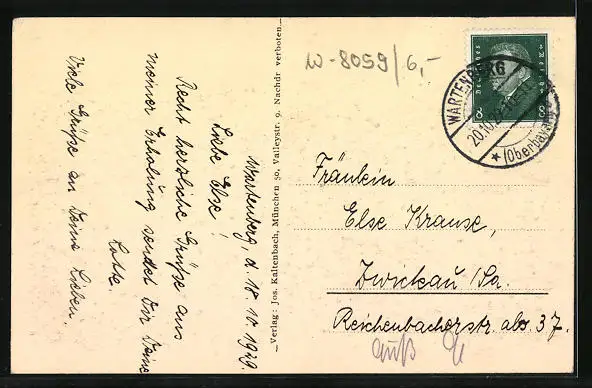 Wartenberg, d. 18.10.1929.
Liebe Else!
Recht herzliche Grüße aus
meiner Erholung sendet Dir Deine
Lotte.
Viele Grüße an Deine Lieben.
Verlag: Jos. Kaltenbach, München 50, Valleystr. 9. Nachdr verboten.
W-8059/6,-
Deutsches Reich
8 8
WARTENBERG
20.10.29
* (Oberbayern)
Fräulein
Else Krause,
Zwickau/Sa.
Reichenbacherstr. 37.